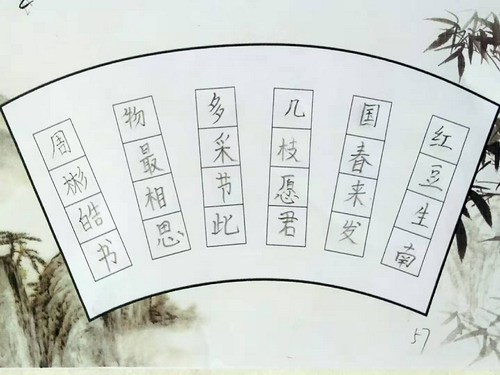 红豆生南
国春来发
几枝愿君
多采节此
物最相思
周彬皓书
57